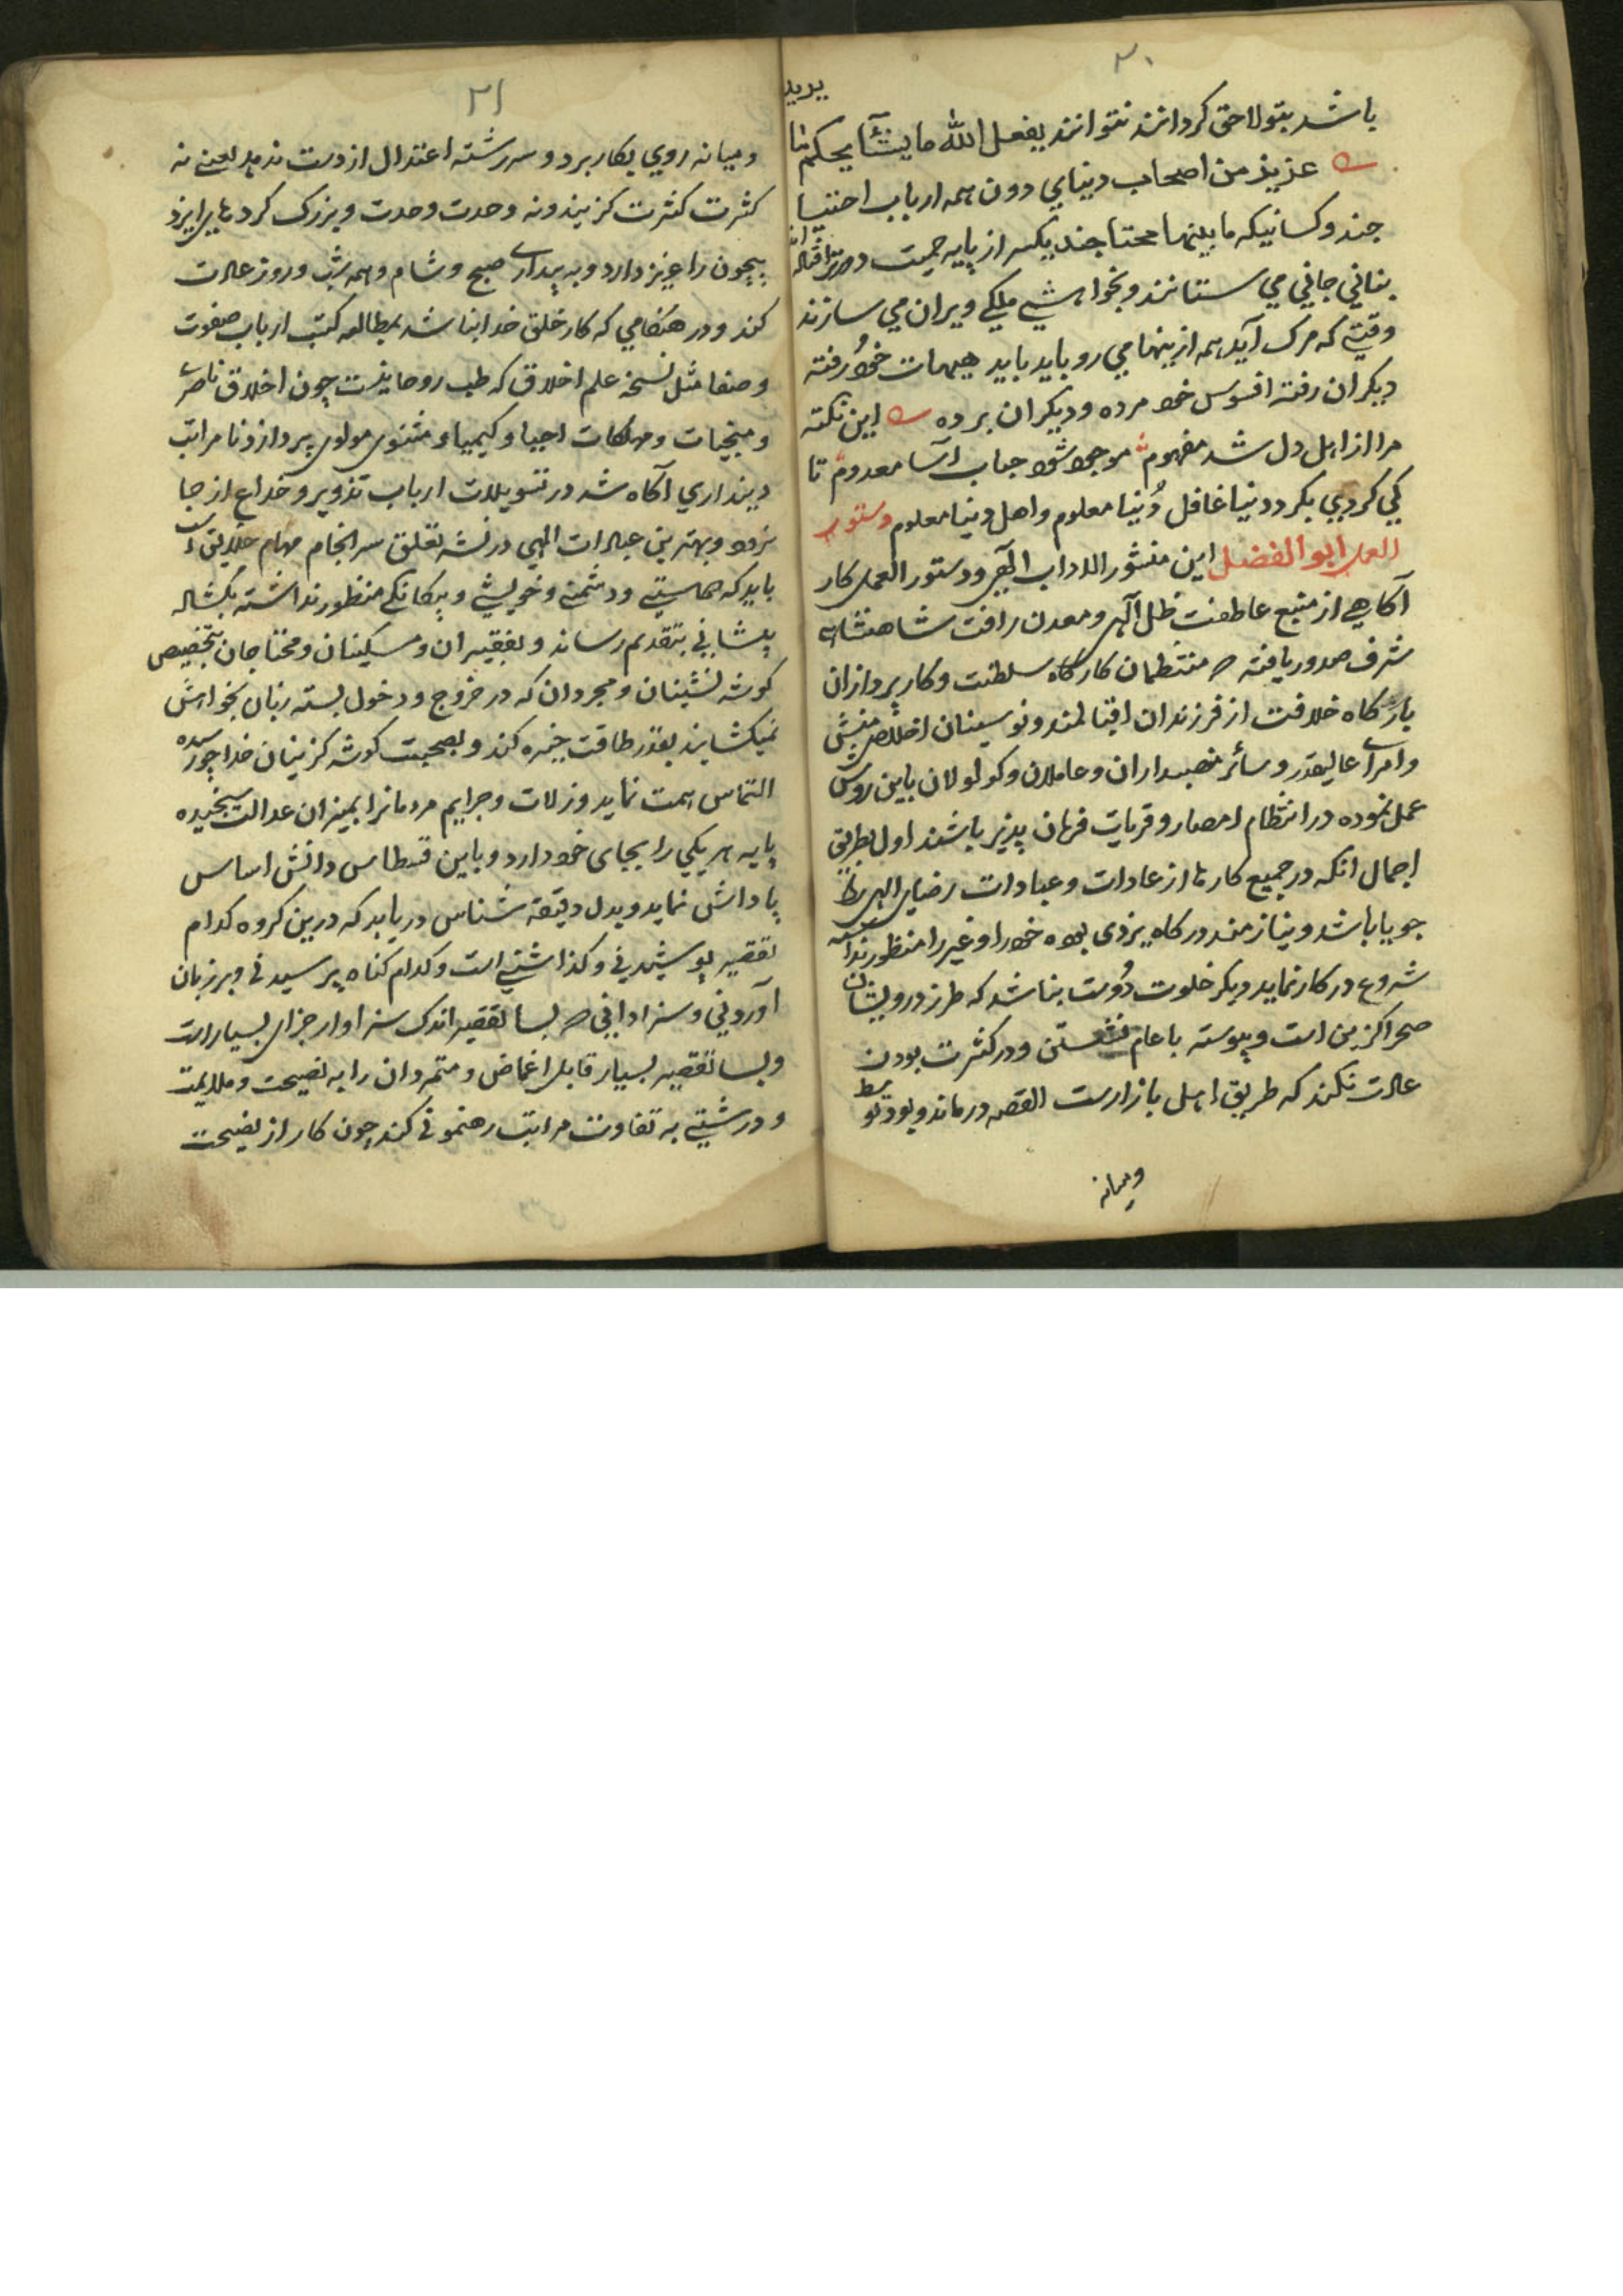 ۲۰
باشد بتولاحق کردانند نتوانند یفعل الله ما یشآ یحکم ما
یرید
عزیز من اصحاب دنیای دون همه ارباب احتیا
جند و کسانیکه مابینها محتاجند یکسر از پایه حمیت
بنانی جانی می ستانند و بخواهشی ملکے ویران می سازند
وقتی که مرک آید همه ازینها می رو باید باید هیهات خود رفته
دیکران رفته افسوس خود مرده و دیکران برده این نکته
مرا از اهل دل شد مفهوم موجود شود حباب آسا معدوم تا
کی کردی بکرد دنیا غافل دُنیا معلوم و اهل دنیا معلوم دستور
العمل ابوالفضل این منشور الاداب الهی و دستور العمل کار
آکاهی از منبع عاطفت ظل آلهی و معدن رافت شاهنشاهی
شرف صدور یافته منتظمان کارگاه سلطنت و کار پردازان
بارکاه خلافت از فرزندان اقبالمند و نوسینان اخلاص منش
و امرآے عالیقدر و سائر منصبداران و عاملان و کولولان باین روش
عمل نموده در انتظام امصار و قریات فرمان پذیر باشند اول بطریق
اجمال انکه در جمیع کارها از عادات و عبادات رضای الهی را
جویا باشد و نیازمند درکاه یزدی بوده خود را و غیر را منظور نداشته
شروع در کار نماید دیکر خلوت دُوست نباشد که طرز درویشان
صحرا کزین است و پیوسته با عام نشستن و در کثرت بودن
عادت نکند که طریق اهل بازارست القصه درماند و بود توسط
ومیانه
۲۱
ومیانه روی بکار برد و سررشته اعتدال از دست ندهد یعنے نه
کثرت کثرت کزیند و نه وحدت وحدت و بزرک کرد های ایزد
بیچون را عزیز دارد و به بیدارے صبح و شام و همه شب و روز عادت
کند و در هنکامی که کار خلق خدا نباشد بمطالعه کتب ارباب صفوت
و صفا مثل نسخه علم اخلاق که طب روحانیست چون اخلاق ناصرے
و منجیات و مهلکات احیا و کیمیا و مثنوی مولوی پردازد تا مراتب
دینداری آکاه شد در تسویلات ارباب تزویر و خداع از جا
نرود و بهترین عبادات الهی در نشه تعلق سرانجام مهام خلایق است
باید که دوستی و دشمنے و خویشے و بیکانکے منظور نداشته بکشاده
پیشانی بتقدیم رساند و بفقیران و مسکینان و محتاجان بتخصیص
کوشه نشینان و مجردان که در خروج و دخول بسته زبان بخواهش
نمیکشایند بقدر طاقت خیره کند و بصحبت کوشه کزینان خدا جو رسیده
التماس همت نماید و زلات و جرایم مردمانرا بمیزان عدالت سنجیده
پایه هر یکی را بجای خود دارد و باین قسطاس دانش اساس
پاداش نماید و بدل دقیقه شناس دریابد که درین کروه کدام
تقصیر پوشیدنی و کذاشتنے است و کدام کناه پرسیدنی و بر زبان
آوردنی و سزا دادنی بسا تقصیر اندک سزاوار جزای بسیار است
و بسا تقصیر بسیار قابل اغماض و متمردان را به نصیحت و ملایمت
و درشتی به تفاوت مراتب رهنمونی کند چون کار از نصیحت